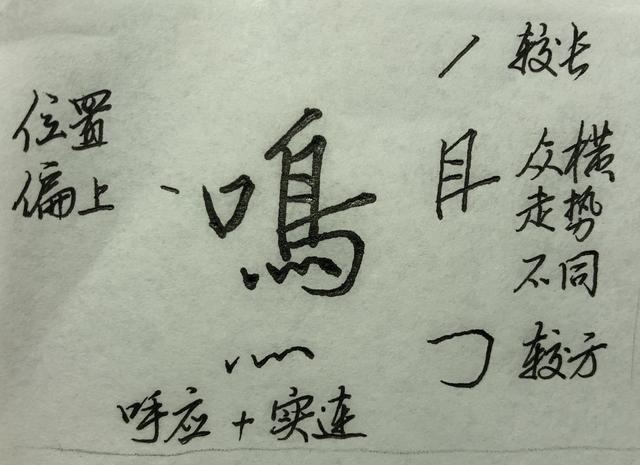 较长
位置
偏上
鳴
众横
走势
不同
较方
呼应+实连